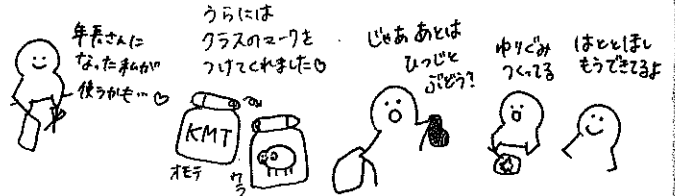 年長さんに
なった私が
使うかも…♡
うらには
クラスのマークを
つけてくれました♡
KMT
オモテ
ウラ
じゃああとは
ひつじと
ぶどう?
ゆりぐみ
つくってる
はととほし
もうできてるよ